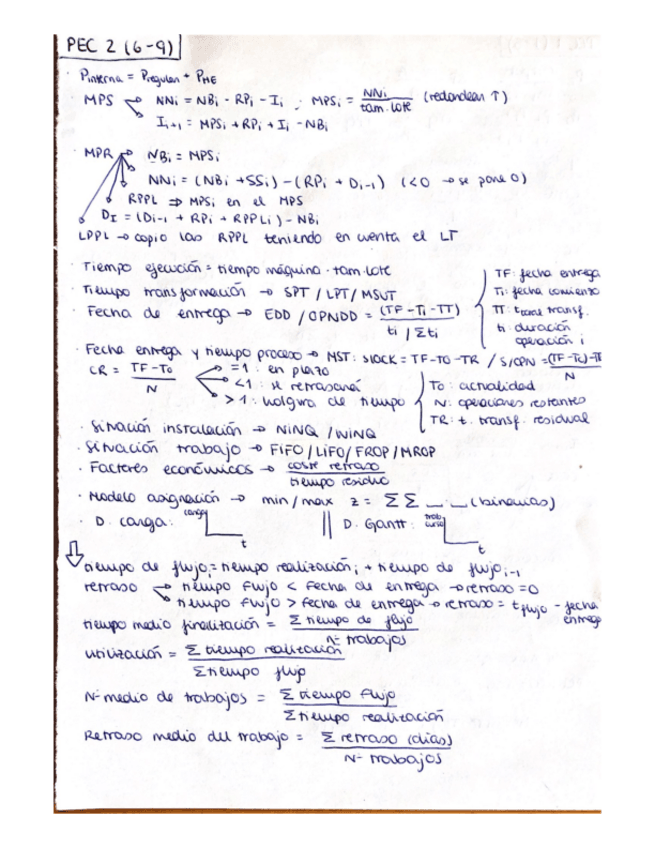 PEC 2 (6-9)
· Pinterna = Pregular + PHE
· MPS → NNi = NBi - RPi - Ii ; MPSi = NNi / tam. lote (redondear ↑)
→ Ii+1 = MPSi + RPi + Ii - NBi
· MPR → NBi = MPSi
NNi = (NBi + SSi) - (RPi + Di-1) (<0 → se pone 0)
RPPL ⇒ MPSi en el MPS
DI = (Di-1 + RPi + RPPLi) - NBi
LPPL → copio las RPPL teniendo en cuenta el LT
· Tiempo ejecución = tiempo máquina · tam. lote
· Tiempo transformación → SPT / LPT / MSUT
· Fecha de entrega → EDD / OPNDD = (TF - Ti - TT) / ti / Σti
TF: fecha entrega
Ti: fecha comienzo
TT: t total transf.
ti: duración
operación i
· Fecha entrega y tiempo proceso → MST: slack = TF - TO - TR / S/OPN = (TF - To) - TR / N
CR = TF - To / N
=1 : en plazo
<1 : se retrasará
>1 : holgura de tiempo
To: actualidad
N: operaciones restantes
TR: t. transf. residual
· Situación instalación → NINQ / WINQ
· Situación trabajo → FIFO / LIFO / FROP / MROP
· Factores económicos → coste retraso / tiempo residuo
· Modelo asignación → min/max z = ΣΣ _ . _ (binarias)
· D. carga: carga t || D. Gantt: trab curso t
⇩ tiempo de flujoi = tiempo realizacióni + tiempo de flujoi-1
retraso → tiempo flujo < fecha de entrega → retraso = 0
→ tiempo flujo > fecha de entrega → retraso = tflujo - fecha entrega
tiempo medio finalización = Σ tiempo de flujo / nº trabajos
utilización = Σ tiempo realización / Σ tiempo flujo
Nº medio de trabajos = Σ tiempo flujo / Σ tiempo realización
Retraso medio del trabajo = Σ retraso (días) / Nº trabajos